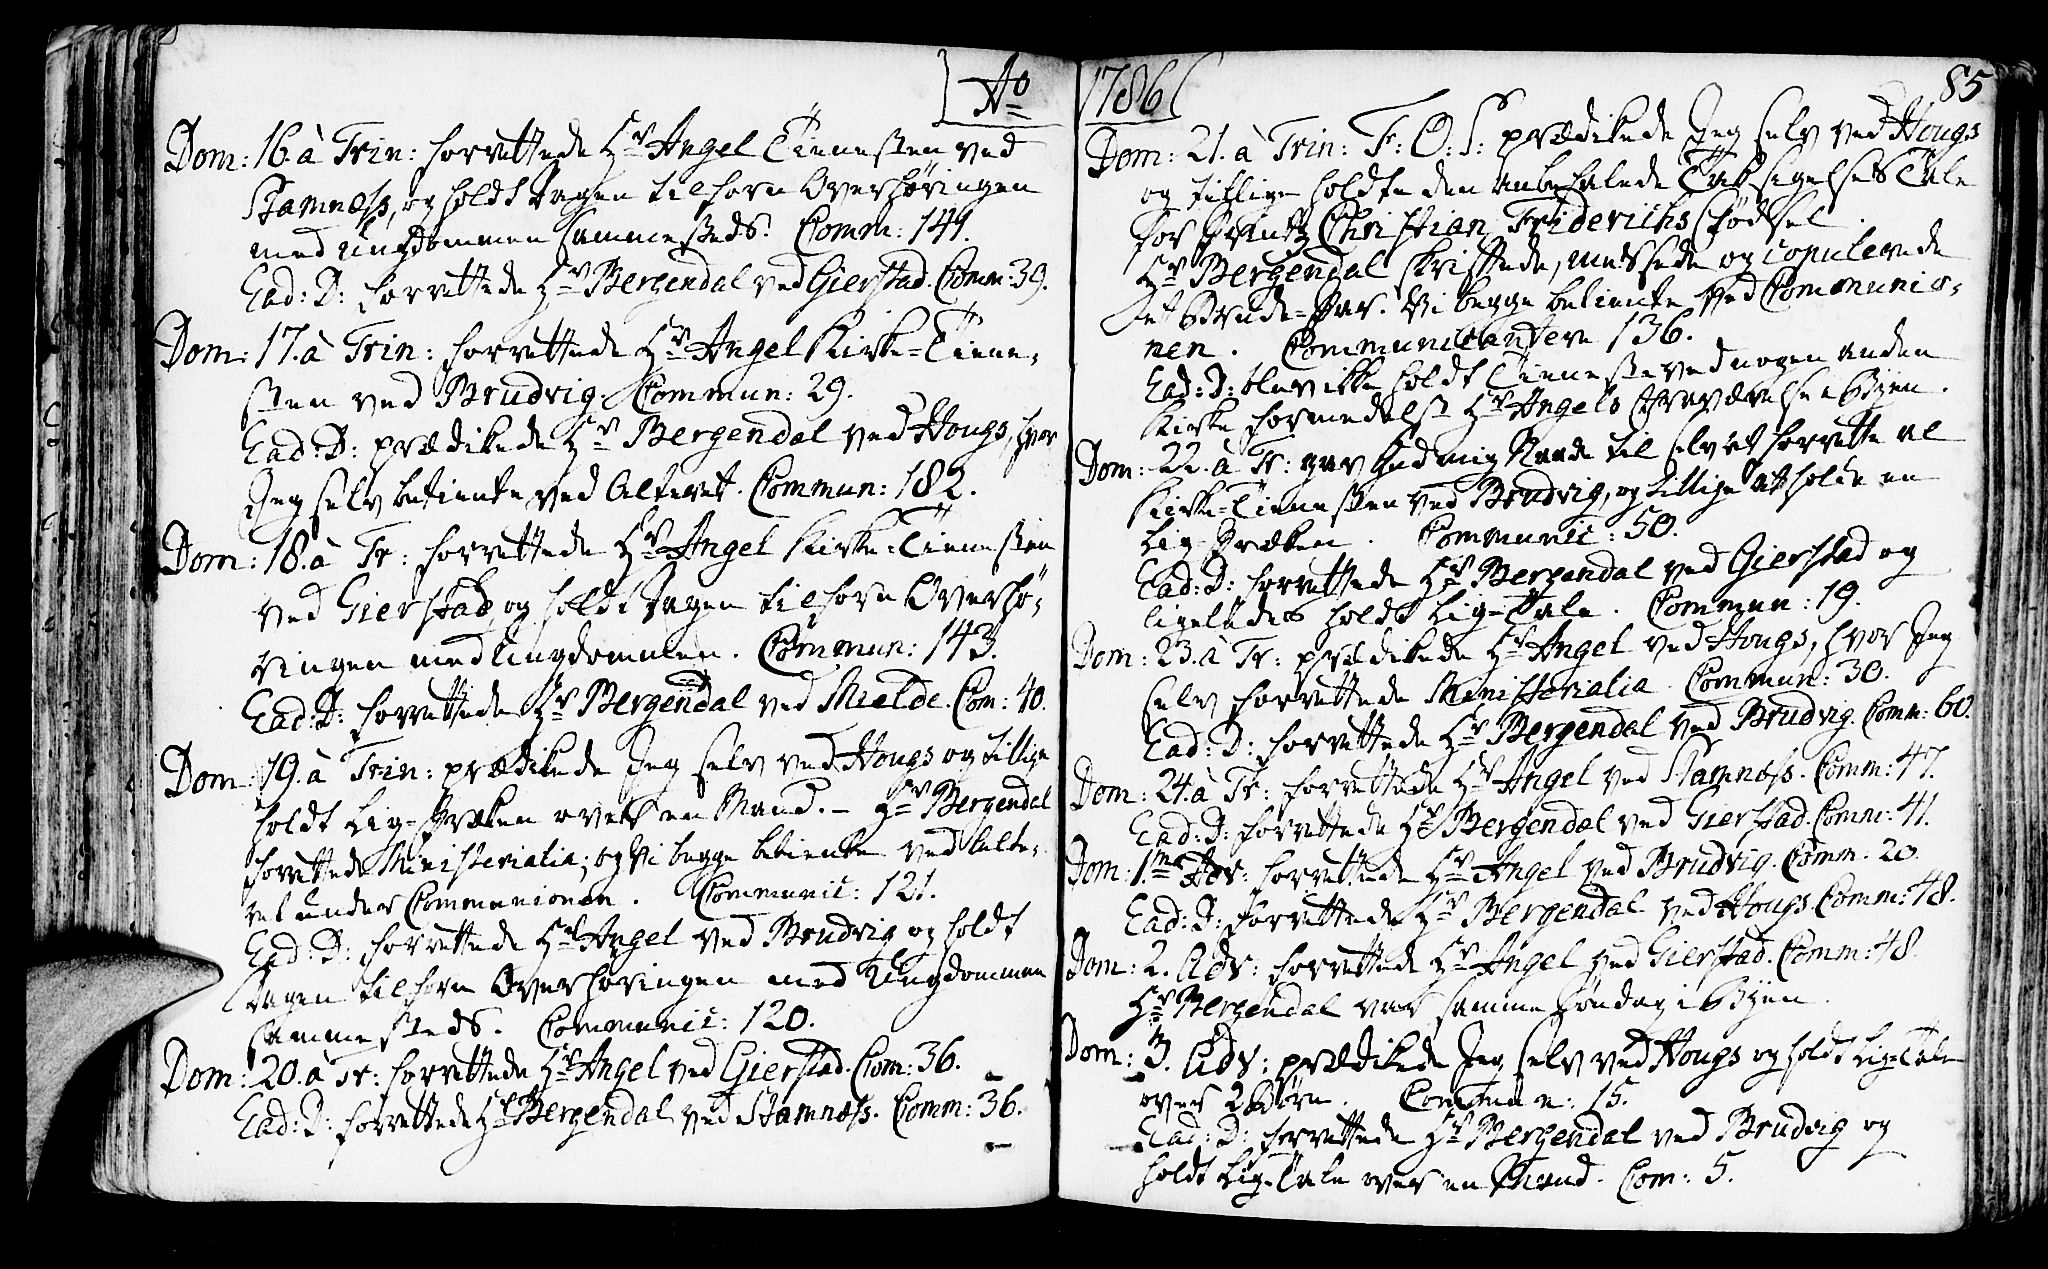 Ao
Dom: 16. à Trin: forrettede Hr Angel Tienesten ved
Stamness, og holdt dagen tilforn Overhøringen
med ungdommen sammesteds. Comm: 141.
Ead: D: forrettede Hr Bergendal ved Gierstad. Comm: 39.
Dom: 17. à Trin: forrettede Hr Angel Kirke-Tiene-
sten ved Brudvig. Commun: 29.
Ead: D: prædikede Hr Bergendal ved Hougs, hvor
Jeg selv betiente ved Alteret. Commun: 182.
Dom: 18. à Tr: forrettede Hr Angel Kirke-Tienesten
ved Gierstad, og holdt dagen tilforn Overhø-
ringen med Ungdommen. Commun: 143.
Ead: D: forrettede Hr Bergendal ved Mielde. Com: 40.
Dom: 19. à Trin: prædikede Jeg selv ved Hougs og tillige
holdt Lig-Præken over en Mand. - Hr Bergendal
forrettede Ministerialia; og Vi begge betiente ved Alte-
ret under Communionen. Communic: 121.
Ead: D: forrettede Hr Angel ved Brudvig og holdt
dagen tilforn Overhøringen med Ungdommen
sammesteds. Communic: 120.
Dom: 20. à Tr: forrettede Hr Angel ved Gierstad. Com: 36.
Ead: D: forrettede Hr Bergendal ved Stamness. Comm: 36.
1786
85
Dom: 21. à Trin: F: O: S: prædikede Jeg selv ved Hougs
og tillige holdte den anbefalede Taksigelses Tale
for Printz Christian Friderichs Fødsel.
Hr Bergendal skriftede, messede og copulerede
et Brude-Par. Vi begge betiente ved Communio-
nen. Communicantere 136.
Ead: D: blev ikke holdt Tieneste ved nogen anden
Kirke formedelst Hr Angels Fraværelse i Byen.
Dom: 22. à Tr: gav Gud mig Naade til selv at forrette al
Kirke-Tienesten ved Brudvig, og tillige at holde en
Lig-Præken. Communic: 50.
Ead: D: forrettede Hr Bergendal ved Gierstad og
ligeledes holdt Lig-Tale. Commun: 19.
Dom: 23. à Tr: prædikede Hr Angel ved Hougs, hvor Jeg
selv forrettede Ministerialia. Commun: 30.
Ead: D: forrettede Hr Bergendal ved Brudvig. Comm: 60.
Dom: 24. à Tr: forrettede Hr Angel ved Stamness. Comm: 47.
Ead: D: forrettede Hr Bergendal ved Gierstad. Comm: 41.
Dom: 1.me Adv: forrettede Hr Angel ved Brudvig. Comm: 20.
Ead: D: forrettede Hr Bergendal ved Hougs. Comm: 48.
Dom: 2. Adv: forrettede Hr Angel ved Gierstad. Comm: 48.
Hr Bergendal var samme Søndag i Byen.
Dom: 3. Adv: prædikede Jeg selv ved Hougs og holdt Lig-Tale
over 2 Børn. Commun: 15.
Ead: D: forrettede Hr Bergendal ved Brudvig og
holdt Lig-Tale over en Mand. Com: 5.